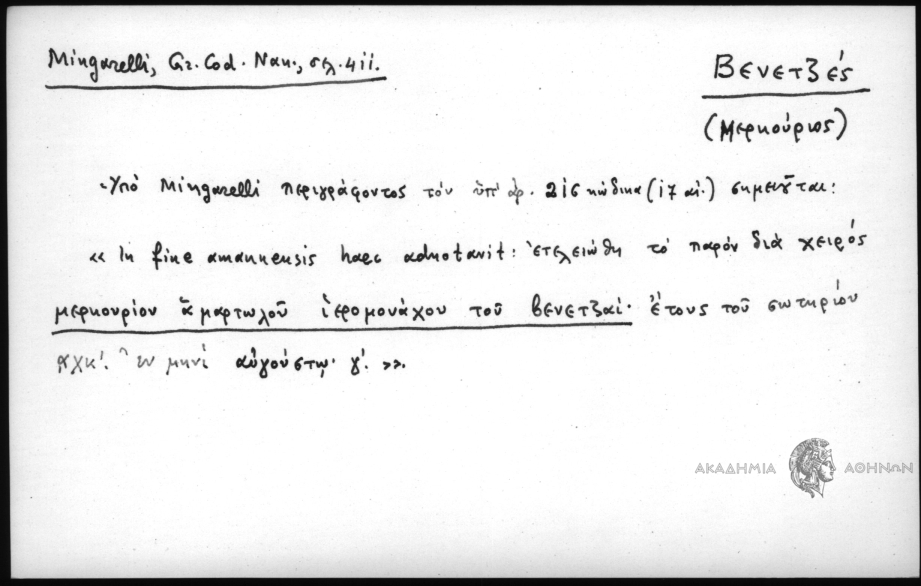 Mingarelli, Gr. Cod. Nan., σελ. 411.
Βενετζές
(Μερκούριος)
-Ὑπό Mingarelli περιγράφοντος τόν ὑπ' ἀρ. 215 κώδικα (17 αἰ.) σημειοῦται:
«In fine amanuensis haec adnotavit: ἐτελειώθη τό παρόν διά χειρός
μερκουρίου ἁμαρτωλοῦ ἱερομονάχου τοῦ βενετζαί· ἔτους τοῦ σωτηρίου
͵αχκ'. ἐν μηνί αὐγούστῳ· γ'. ».
ΑΚΑΔΗΜΙΑ ΑΘΗΝΩΝ